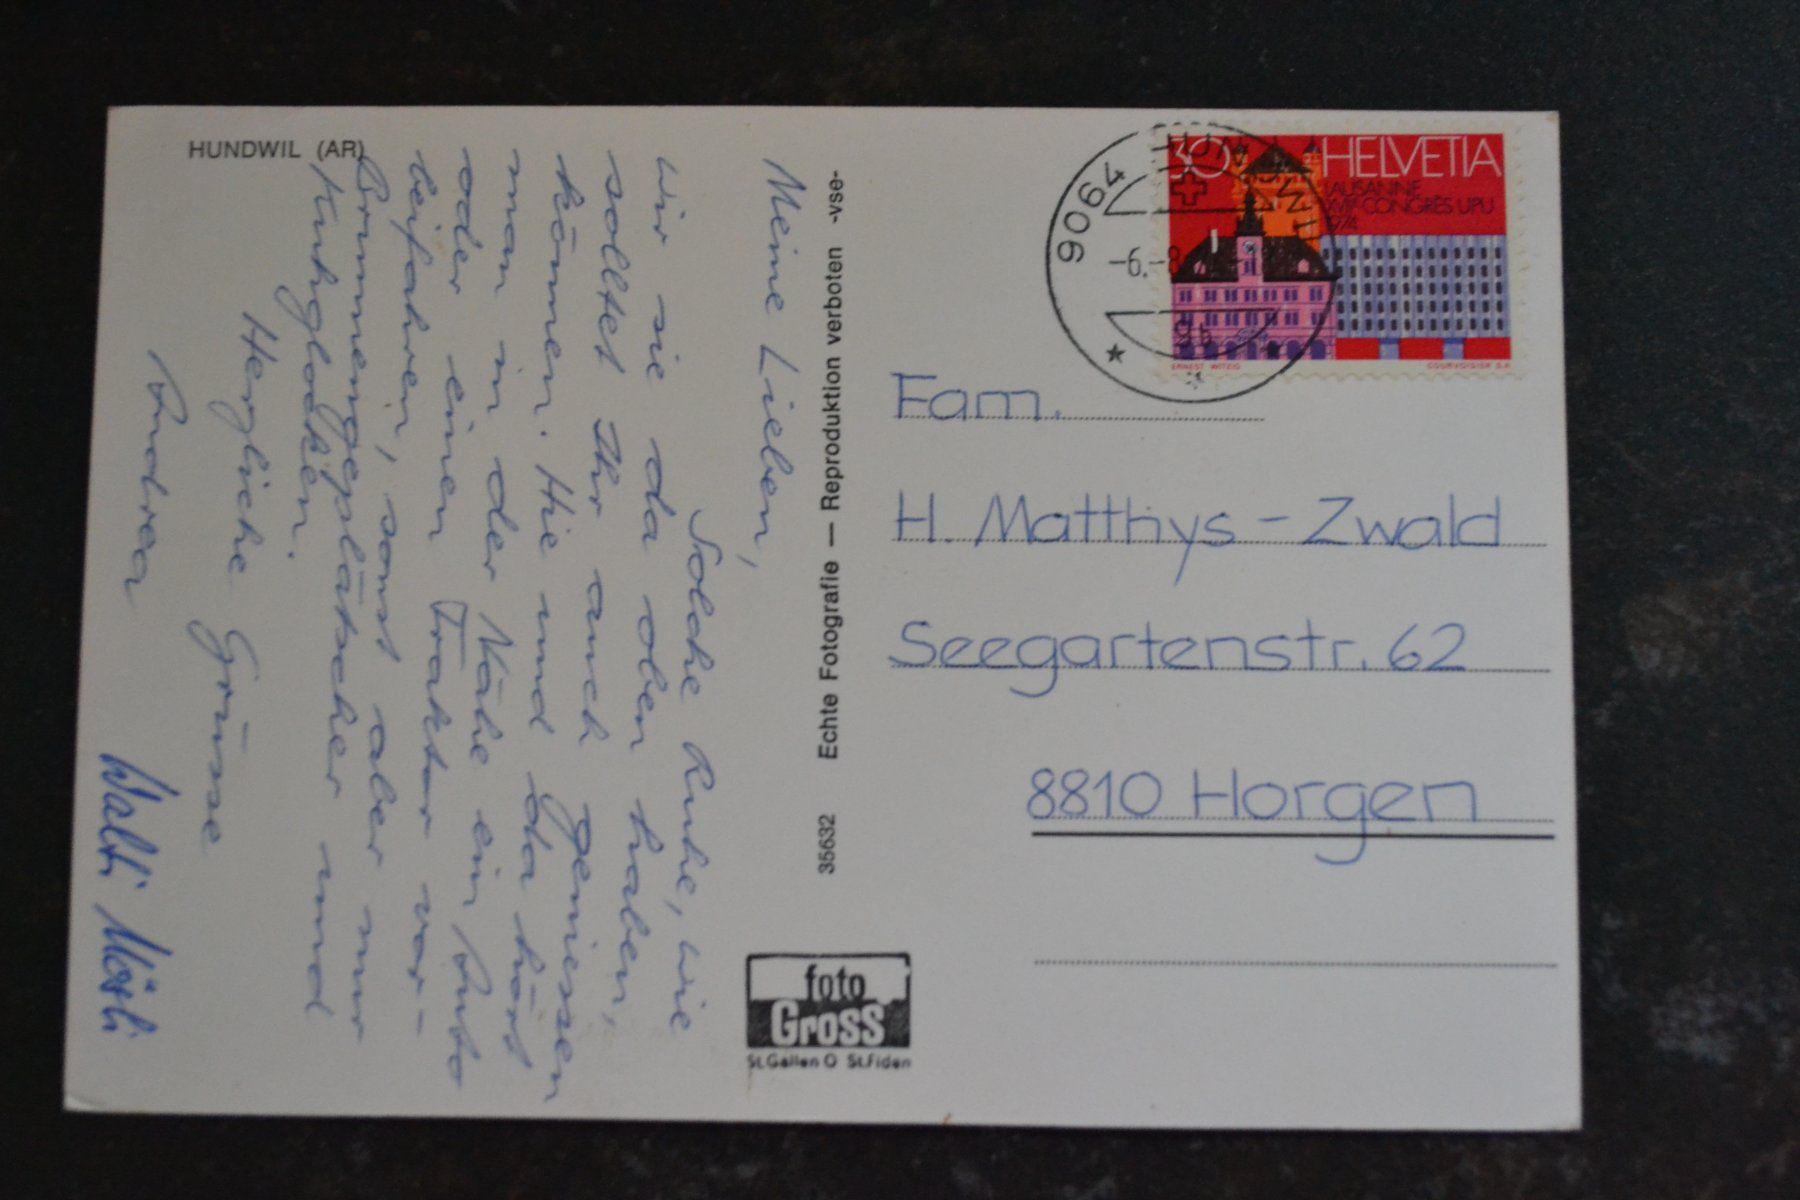 HUNDWIL (AR)
Meine Lieben,
Solche Ruhe, wie
wir sie da oben haben,
solltet Ihr auch geniessen
können. Hie und da hört
man in der Nähe ein Auto
oder einen Traktor vor-
beifahren, sonst aber nur
Brunnengeplätscher und
Kuhglocken.
Herzliche Grüsse
Andrea Walti Mösli
35632 Echte Fotografie — Reproduktion verboten -vse-
foto
Gross
St.Gallen O St.Fiden
9064 HUNDWIL
-6.-8
30 HELVETIA
LAUSANNE
XVIIe CONGRÈS UPU
1974
ERNEST WITZIG COURVOISIER S.A.
Fam.
H. Matthys - Zwald
Seegartenstr. 62
8810 Horgen